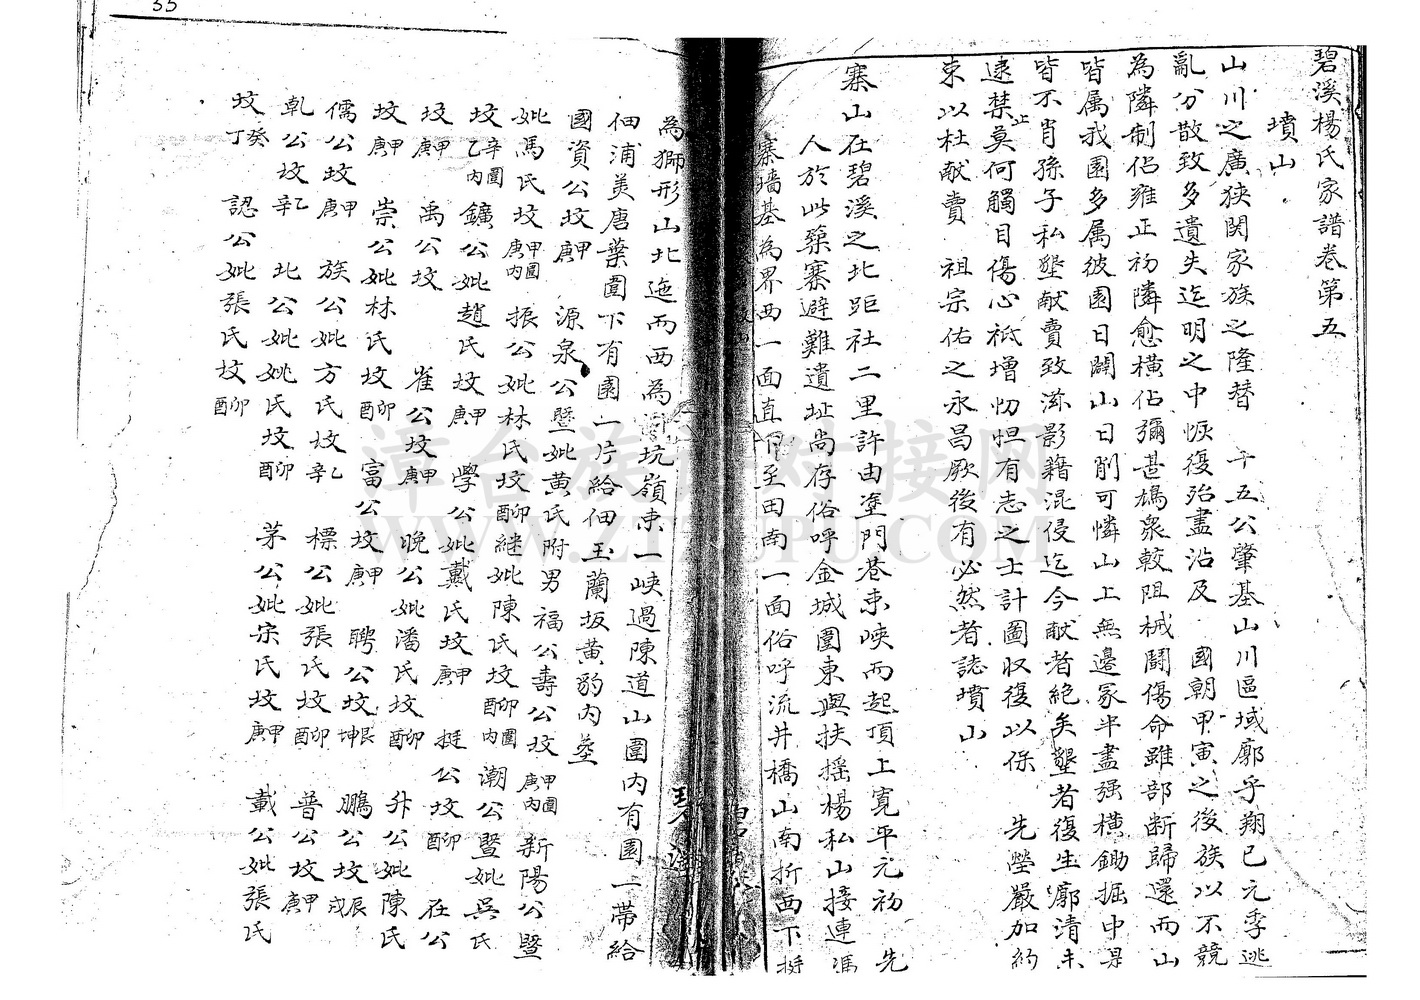 碧溪楊氏家譜卷第五
墳山
山川之廣狹関家族之隆替 十五公肇基山川區域廓乎翔已元季逃
亂分散致多遺失迄明之中恢復殆盡沿及 國朝甲寅之後族以不競
為隣制佔雍正初隣愈橫佔彌甚鳩衆較阻械鬪傷命雖部断歸還而山
皆属我園多属彼園日闢山日削可憐山上無邊冢半盡强横鋤掘中是
皆不肖孫子私墾献賣致滋影藉混侵迄今献者絶矣墾者復生廓清未
逮禁止莫何觸目傷心祗增忉怛有志之士計圖収復以保 先塋嚴加約
束以杜献賣 祖宗佑之永昌厥後有必然者誌墳山
寨山在碧溪之北距社二里許由塗門巷束峽而起頂上寛平元初 先
人於此築寨避難遺址尚存俗呼金城圍東與扶摇楊私山接連馮
寨墻基為界西一面直 至田南一面俗呼流井橋山南折西下
為獅形山北迤而西為 坑嶺束一峽過陳道山圍内有園一帶給
佃浦美唐葉圍下有園一片給佃玉蘭坂黄豹内塟
國資公坟庚甲 源泉公暨妣黄氏附男福公壽公坟庚甲内圍 新陽公暨
妣馮氏坟庚甲内圍 振公妣林氏坟酉卯継妣陳氏坟酉卯内圍 潮公暨妣吳氏
坟乙辛内圍 鑛公妣趙氏坟庚甲 學公妣戴氏坟庚甲 挺公坟酉卯 在公
坟庚甲 禹公坟 雀公坟庚甲 晚公妣潘氏坟酉卯 升公妣陳氏
坟庚甲 崇公妣林氏坟酉卯 富公坟庚甲 聘公坟坤艮 鵬公坟戌辰
儒公坟庚甲 族公妣方氏坟辛乙 標公妣張氏坟酉卯 普公坟庚甲
乹公坟辛乙 北公妣姚氏坟酉卯 茅公妣宗氏坟庚甲 戴公妣張氏
坟丁癸 認公妣張氏坟酉卯
35
漳台族谱对接网
WWW.ZTZUPU.COM